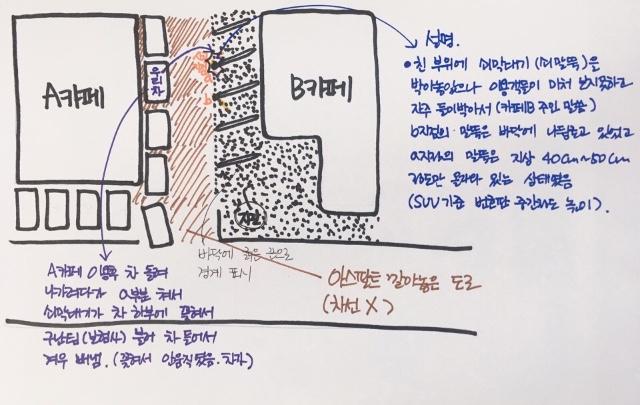 설명.
• 친 부위에 쇠막대기 (쇠말뚝)은
박아놓았으나 이용객들이 미처 보지못하고
자주 들이박아서 (카페B 주인 말씀)
b지점의 말뚝은 바닥에 나뒹굴고 있었고
a지점의 말뚝은 지상 40cm~50cm
정도만 올라와 있는 상태였음
(SUV 기준 번호판 중간정도 높이).
A카페
우리차
B카페
a
b
자갈
바닥에 굵은 끈으로
경계 표시
아스팔트 깔아놓은 도로
(차선 X)
A카페 이용후 차 돌려
나가려다가 a부분 쳐서
쇠막대기가 차 하부에 꽂혀서
구난팀(보험사) 불러 차 들어서
겨우 빼냄. (꽂혀서 안움직였음. 차가)